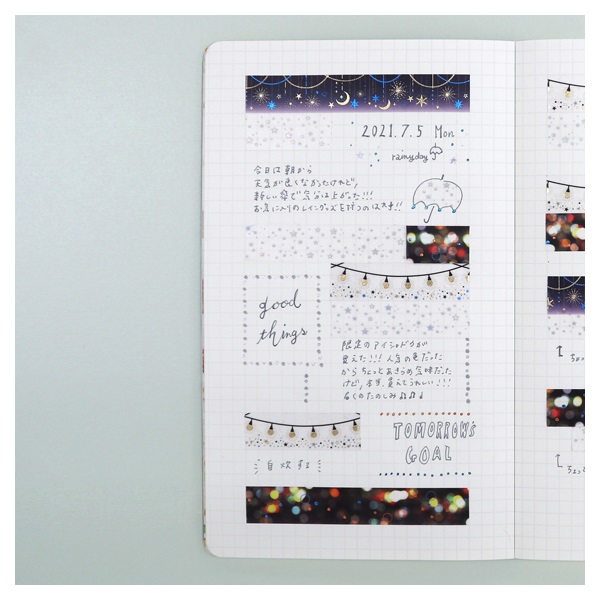 2021.7.5 Mon
rainyday
今日は朝から
天気が良くなかったけれど,
新しい傘で気分は上がった!!!
お気に入りのレイングッズを持つのは大事!!
good
things
限定のアイシャドウが
買えた!!! 人気の色だった
からちょっとあきらめ気味だった
けど, 本当、買えてうれしい!!!
届くのたのしみ♫♫♪
TOMORROW'S
GOAL
自炊する
↑
ちょっ
↑
ちょっ